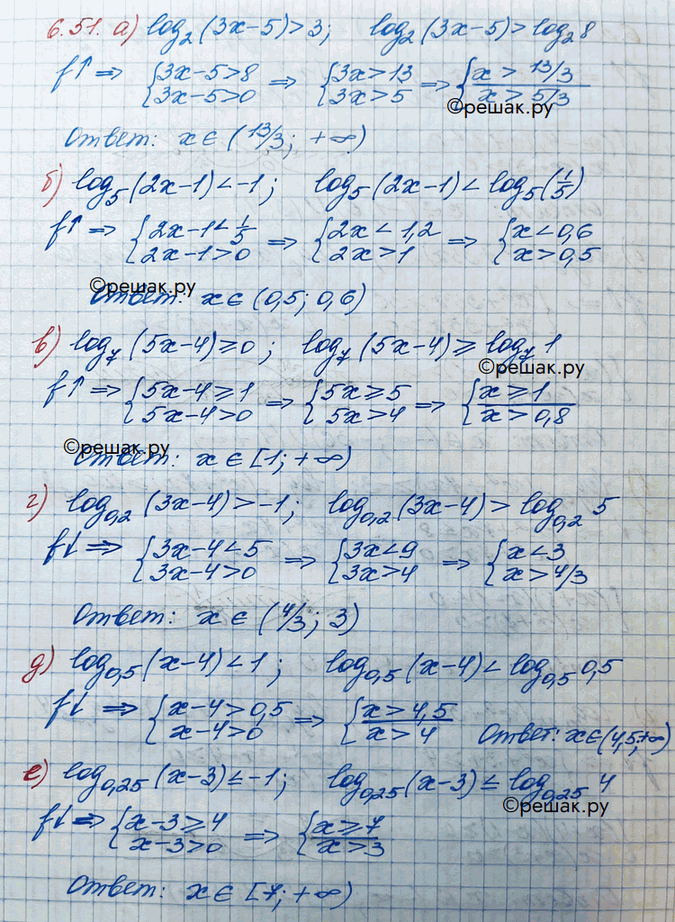 6.51. а) log₂(3x-5)>3; log₂(3x-5)>log₂8
f↑ ⇒ {3x-5>8 ⇒ {3x>13 ⇒ {x>13/3
{3x-5>0 {3x>5 {x>5/3
©решак.ру
Ответ: x∈(13/3; +∞)
б) log₅(2x-1)<-1; log₅(2x-1)<log₅(1/5)
f↑ ⇒ {2x-1<1/5 ⇒ {2x<1,2 ⇒ {x<0,6
{2x-1>0 {2x>1 {x>0,5
©решак.ру
Ответ: x∈(0,5; 0,6)
в) log₇(5x-4)≥0; log₇(5x-4)≥log₇1
©решак.ру
f↑ ⇒ {5x-4≥1 ⇒ {5x≥5 ⇒ {x≥1
{5x-4>0 {5x>4 {x>0,8
©решак.ру
Ответ: x∈[1; +∞)
г) log₀,₂(3x-4)>-1; log₀,₂(3x-4)>log₀,₂5
f↓ ⇒ {3x-4<5 ⇒ {3x<9 ⇒ {x<3
{3x-4>0 {3x>4 {x>4/3
Ответ: x∈(4/3; 3)
д) log₀,₅(x-4)<1; log₀,₅(x-4)<log₀,₅0,5
f↓ ⇒ {x-4>0,5 ⇒ {x>4,5
{x-4>0 {x>4 Ответ: x∈(4,5;+∞)
е) log₀,₂₅(x-3)≤-1; log₀,₂₅(x-3)≤log₀,₂₅4
©решак.ру
f↓ ⇒ {x-3≥4 ⇒ {x≥7
{x-3>0 {x>3
Ответ: x∈[7; +∞)